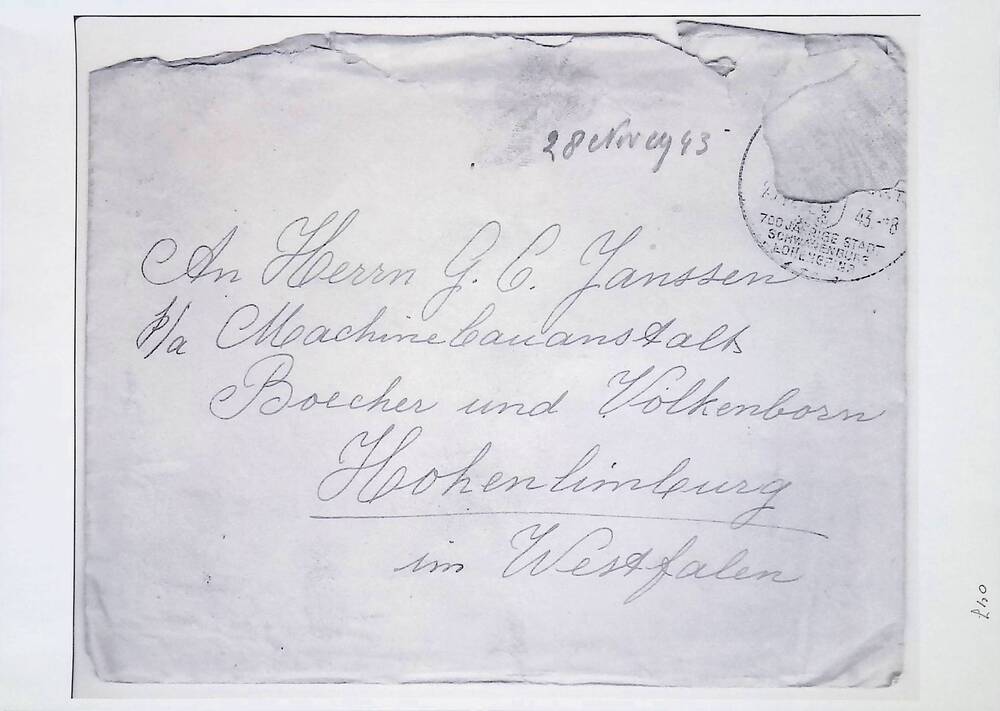 28 Nov 43
43.-8
700 JÄHRIGE STADT
SCHWANENBURG
LOHENGRIN
An Herrn G. C. Janssen
p/a Machinebauanstalt
Boecher und Volkenborn
Hohenlimburg
im Westfalen